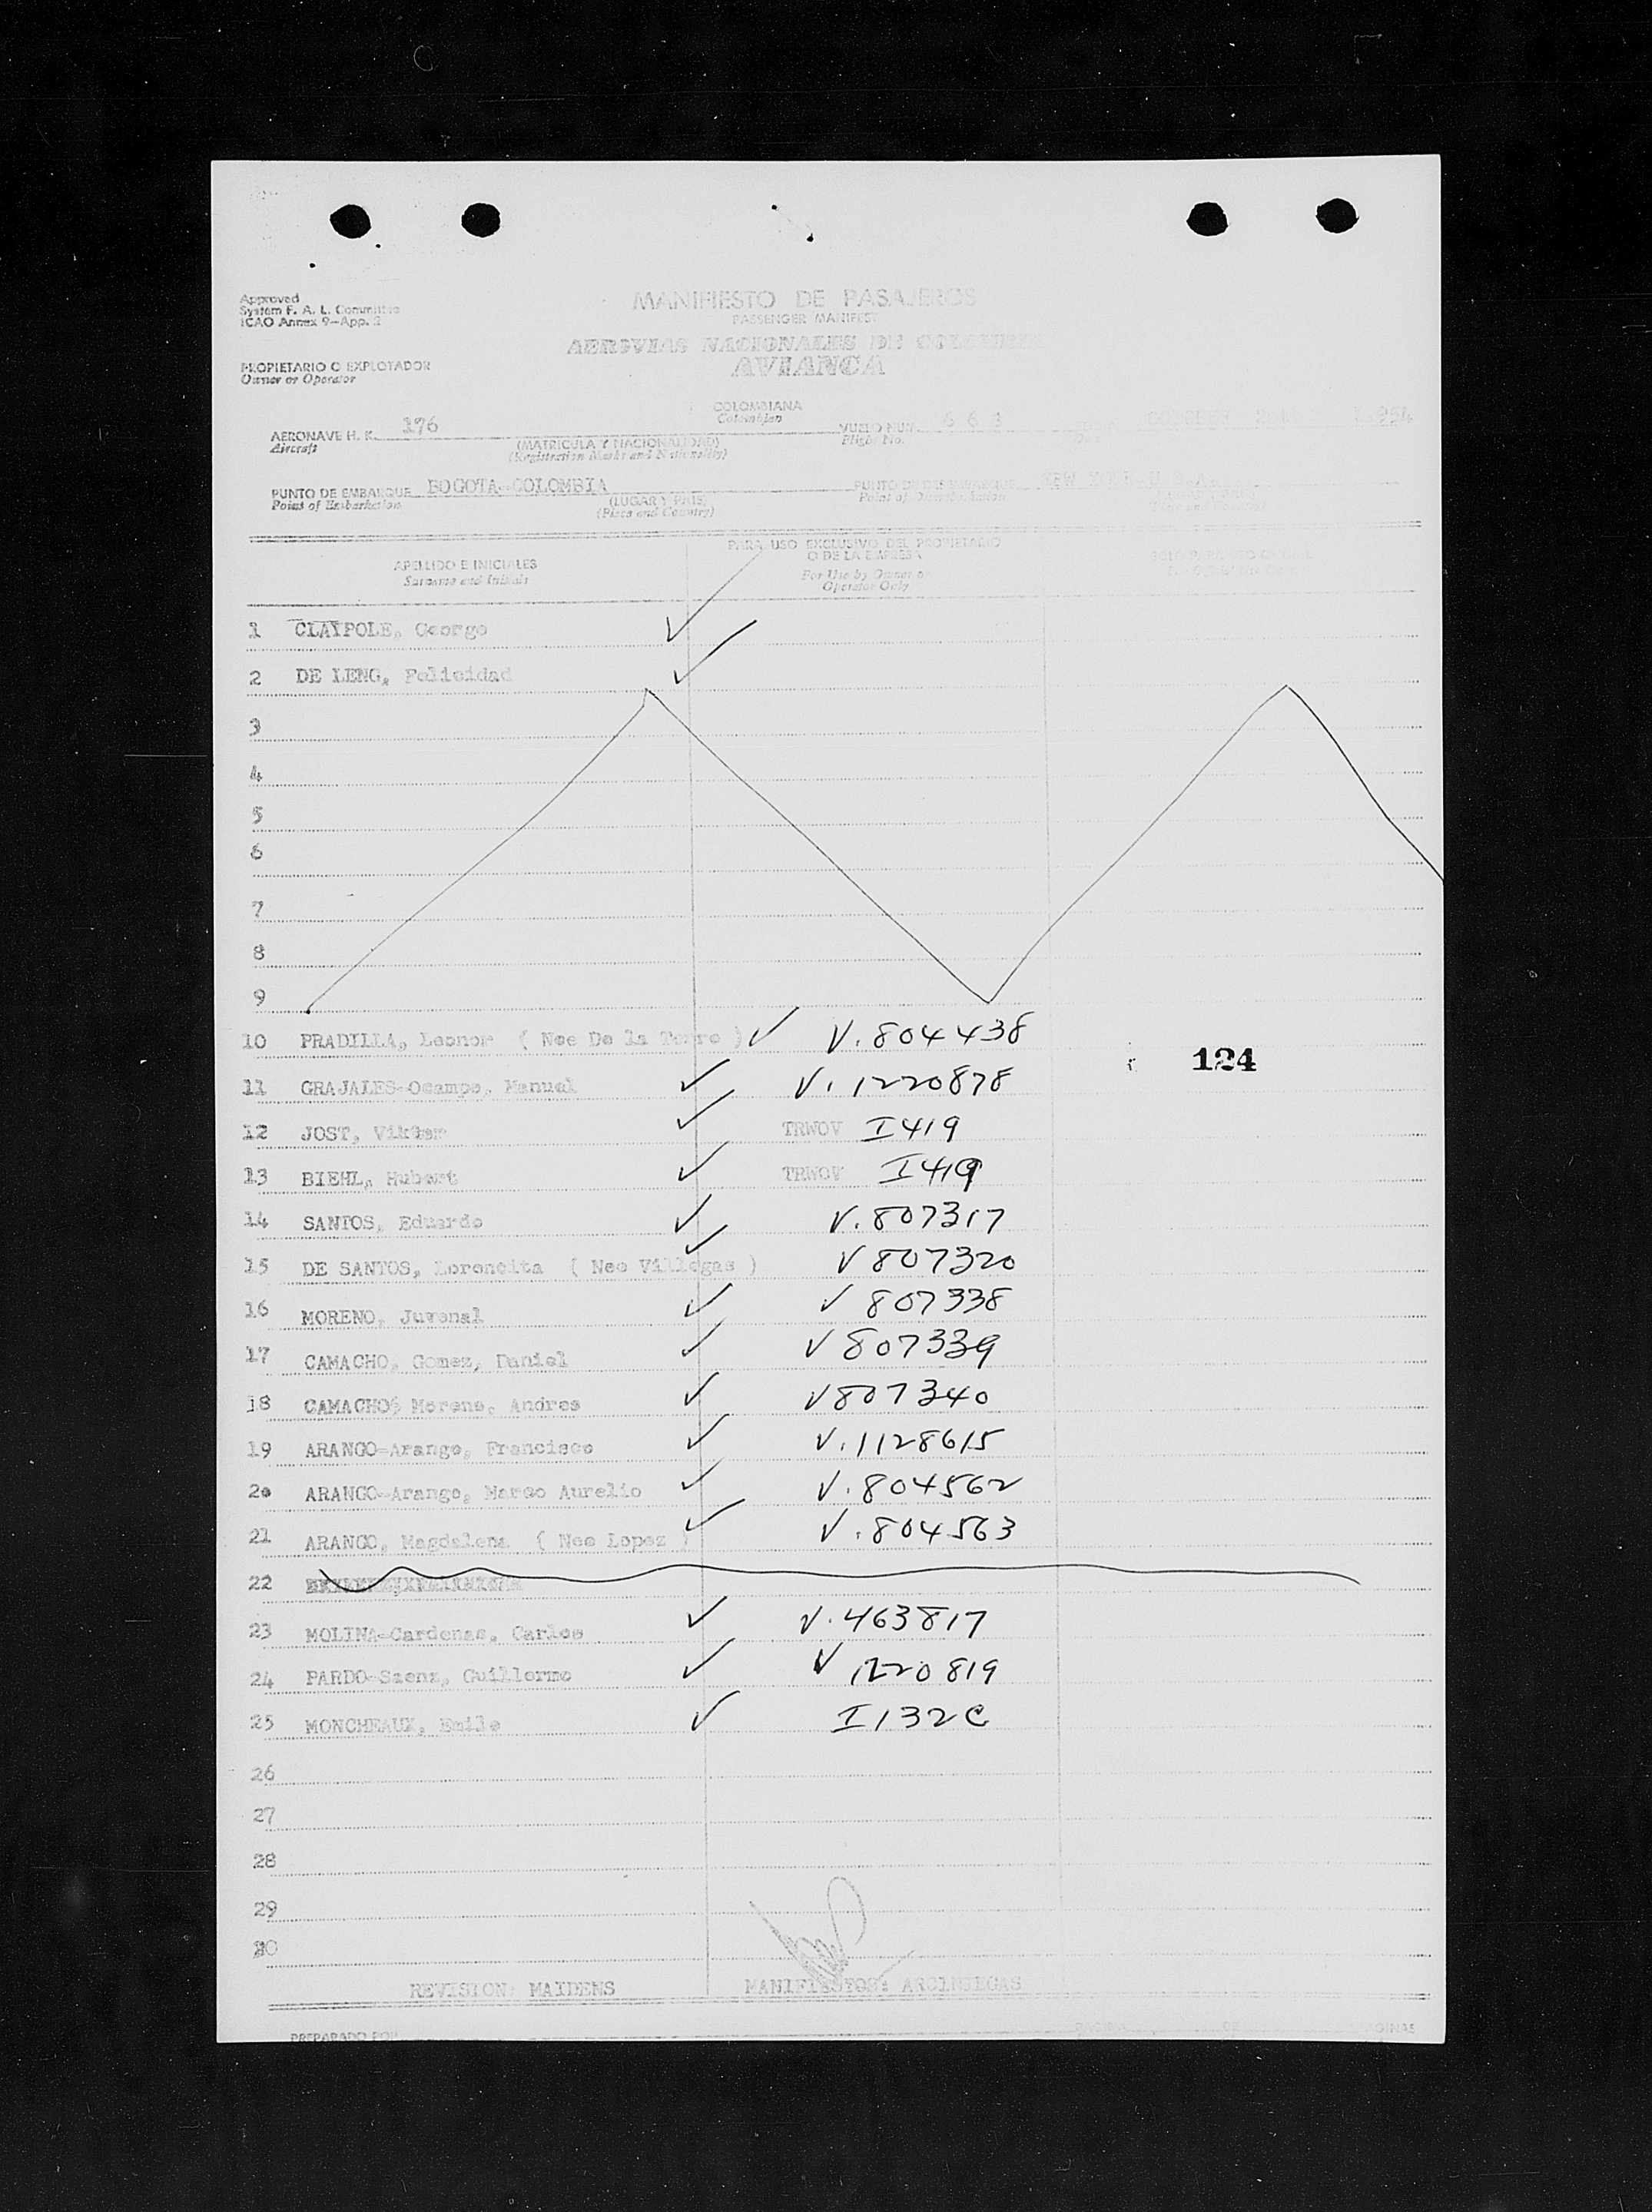 Approved
System F. A. L. Committee
ICAO Annex 9-App. 2
MANIFIESTO DE PASAJEROS
PASSENGER MANIFEST
AEROVIAS NACIONALES DE COLOMBIA
AVIANCA
PROPIETARIO O EXPLOTADOR
Owner or Operator
COLOMBIANA
Colombian
AERONAVE H. K. 176
Aircraft
(MATRICULA Y NACIONALIDAD)
(Registration Marks and Nationality)
VUELO NUM. 663
Flight No.
PUNTO DE EMBARQUE BOGOTA-COLOMBIA
Point of Embarkation
(LUGAR Y PAIS)
(Place and Country)
PUNTO DE DESEMBARQUE NEW YORK U.S.A.
Point of Disembarkation
APELLIDO E INICIALES
Surname and Initials
PARA USO EXCLUSIVO DEL PROPIETARIO
O DE LA EMPRESA
For Use by Owner or
Operator Only
1 CLAYPOLE, George
2 DE LENG, Felicidad
3
4
5
6
7
8
9
10 PRADILLA, Leonor ( Nee De la Torre ) V. 804438
124
11 GRAJALES-Ocampo, Manuel V. 1220878
12 JOST, Viktor TRWOV I419
13 BIEHL, Hubert TRWOV I419
14 SANTOS, Eduardo V. 807317
15 DE SANTOS, Lorencita ( Nee Villegas ) V 807320
16 MORENO, Juvenal V 807338
17 CAMACHO, Gomez, Daniel V 807339
18 CAMACHO, Moreno, Andres V 807340
19 ARANGO-Arango, Francisco V. 1128615
20 ARANGO-Arango, Marco Aurelio V. 804562
21 ARANGO, Magdalena ( Nee Lopez ) V. 804563
22
23 MOLINA-Cardenas, Carlos V. 463817
24 PARDO-Saenz, Guillermo V 1220819
25 MONCHEAUX, Emile I132C
26
27
28
29
30
REVISION: MAIDENS MANIFIESTOS: ARCINIEGAS
PREPARADO POR
PAGINAS